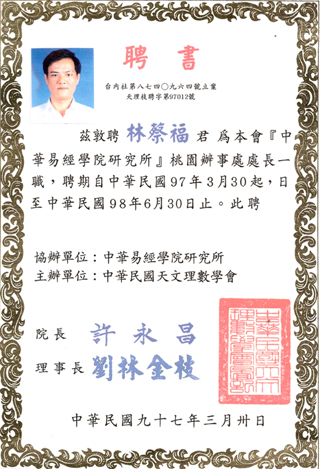 聘書
台內社第八七四〇九六四號立案
天理技聘字第97012號
茲敦聘 林蔡福 君 為本會『中
華易經學院研究所』桃園辦事處處長一
職，聘期自中華民國97年3月30起，日
至中華民國98年6月30日止。此聘
協辦單位：中華易經學院研究所
主辦單位：中華民國天文理數學會
院長 許永昌
理事長 劉林金枝
中華民國九十七年三月卅日